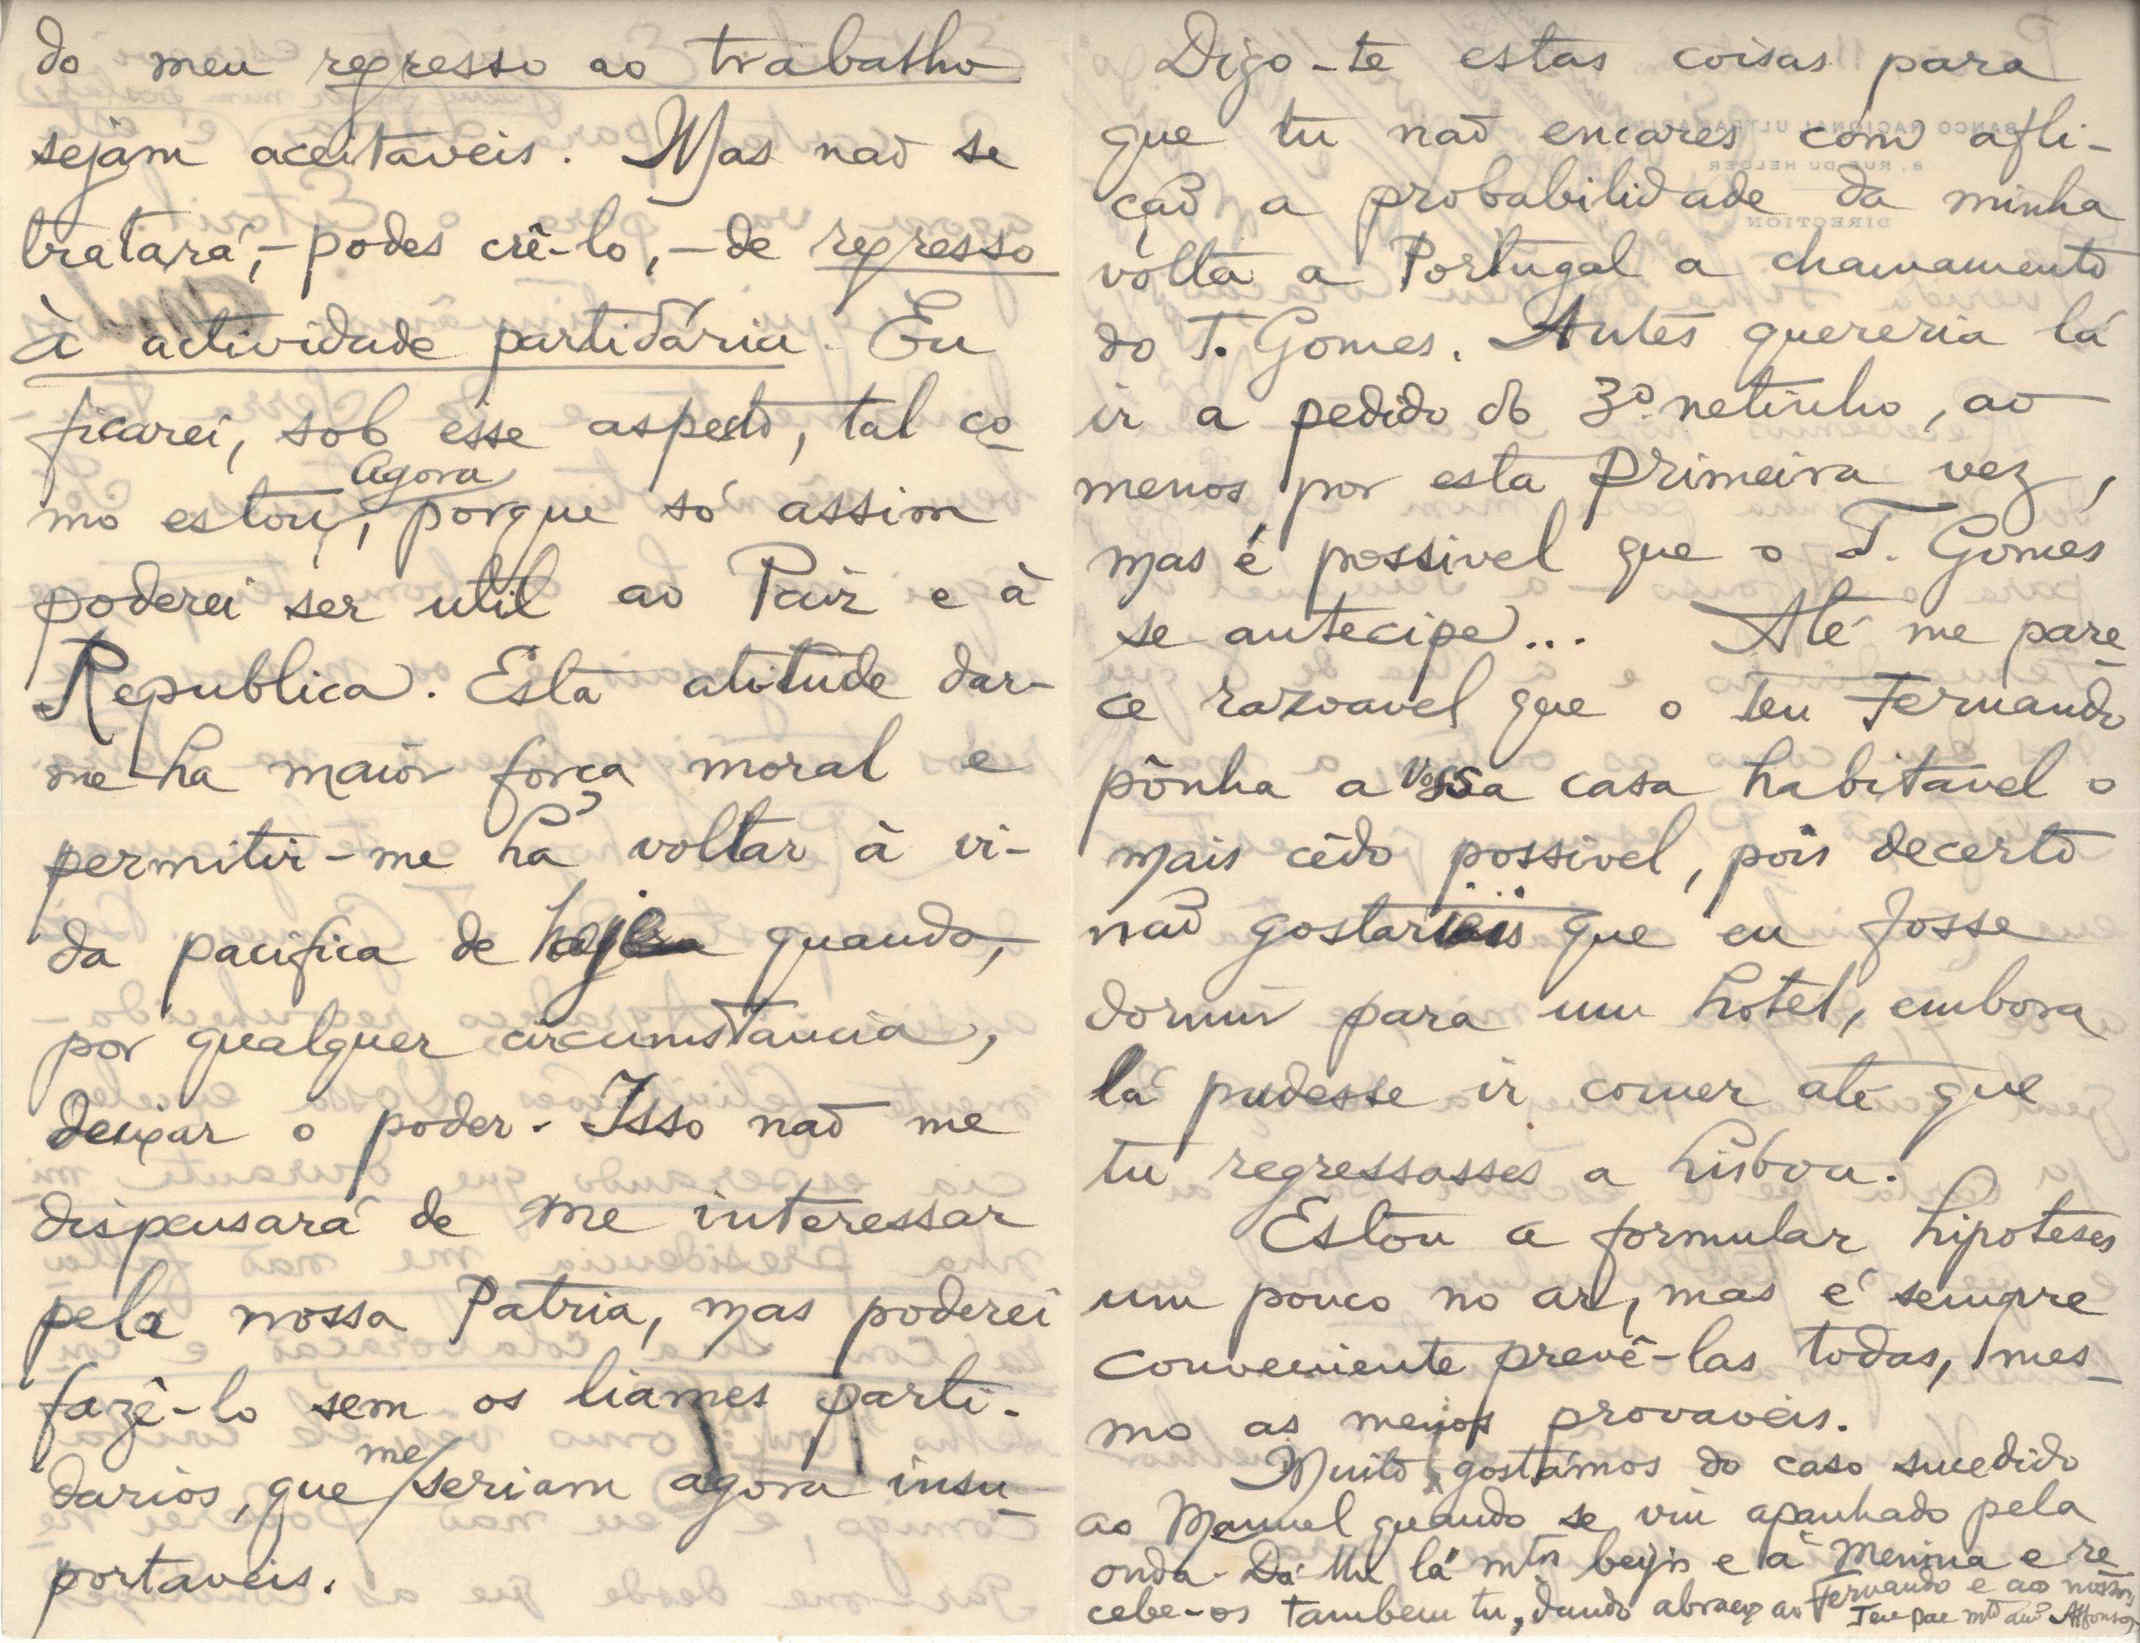 do meu regresso ao trabalho
sejam aceitaveis. Mas não se
tratará,-podes crê-lo,-de regresso
à actividade partidária. Eu
ficarei, sob êsse aspecto, tal co-
mo estou agora, porque só assim
poderei ser util ao Paiz e à
Republica. Esta atitude dar-
me-ha maior força moral e
permitir-me ha voltar à vi-
da pacifica de hoje quando,
por qualquer circumstancia,
deixar o poder. Isso não me
dispensará de me interessar
pela nossa Patria, mas poderei
fazê-lo sem os liames parti-
darios, que me seriam agora insu-
portaveis.
Digo-te estas coisas para
que tu não encares com afli-
ção a probabilidade da minha
volta a Portugal a chamamento
do T. Gomes. Antes quereria lá
ir a pedido do 3º netinho, ao
menos por esta primeira vez,
mas é possivel que o T. Gomes
se antecipe... Até me pare-
ce razoavel que o teu Fernando
pônha a vossa casa habitável o
mais cêdo possivel, pois decerto
não gostarieis que eu fosse
dormir para um hotel, embora
lá pudesse ir comer até que
tu regressasses a Lisboa.
Estou a formular hipoteses
um pouco no ar, mas é sempre
conveniente prevê-las todas, mes-
mo as menos provaveis.
Muito gostámos do caso sucedido
ao Manuel quando se viu apanhado pela
onda. Dá-lhe lá mtos beijos e à Menina e re-
cebe-os tambem tu, dando abraços ao Fernando e aos nossos
Teu pae mto amo Affonso